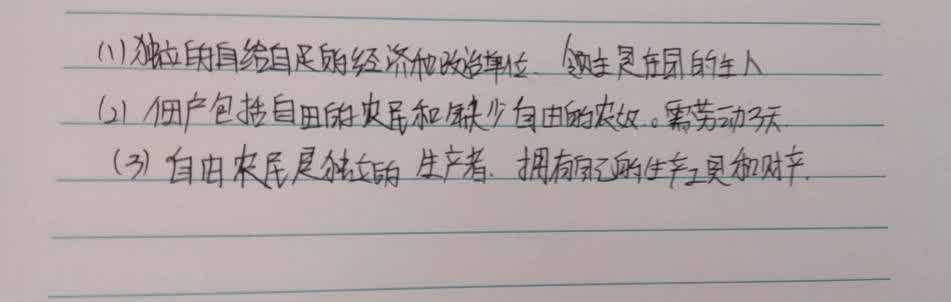 (1)独立的自给自足的经济和政治单位、领主是庄园的主人
(2)佃户包括自由的农民和缺少自由的农奴。需劳动3天
(3)自由农民是独立的生产者、拥有自己的生产工具和财产.